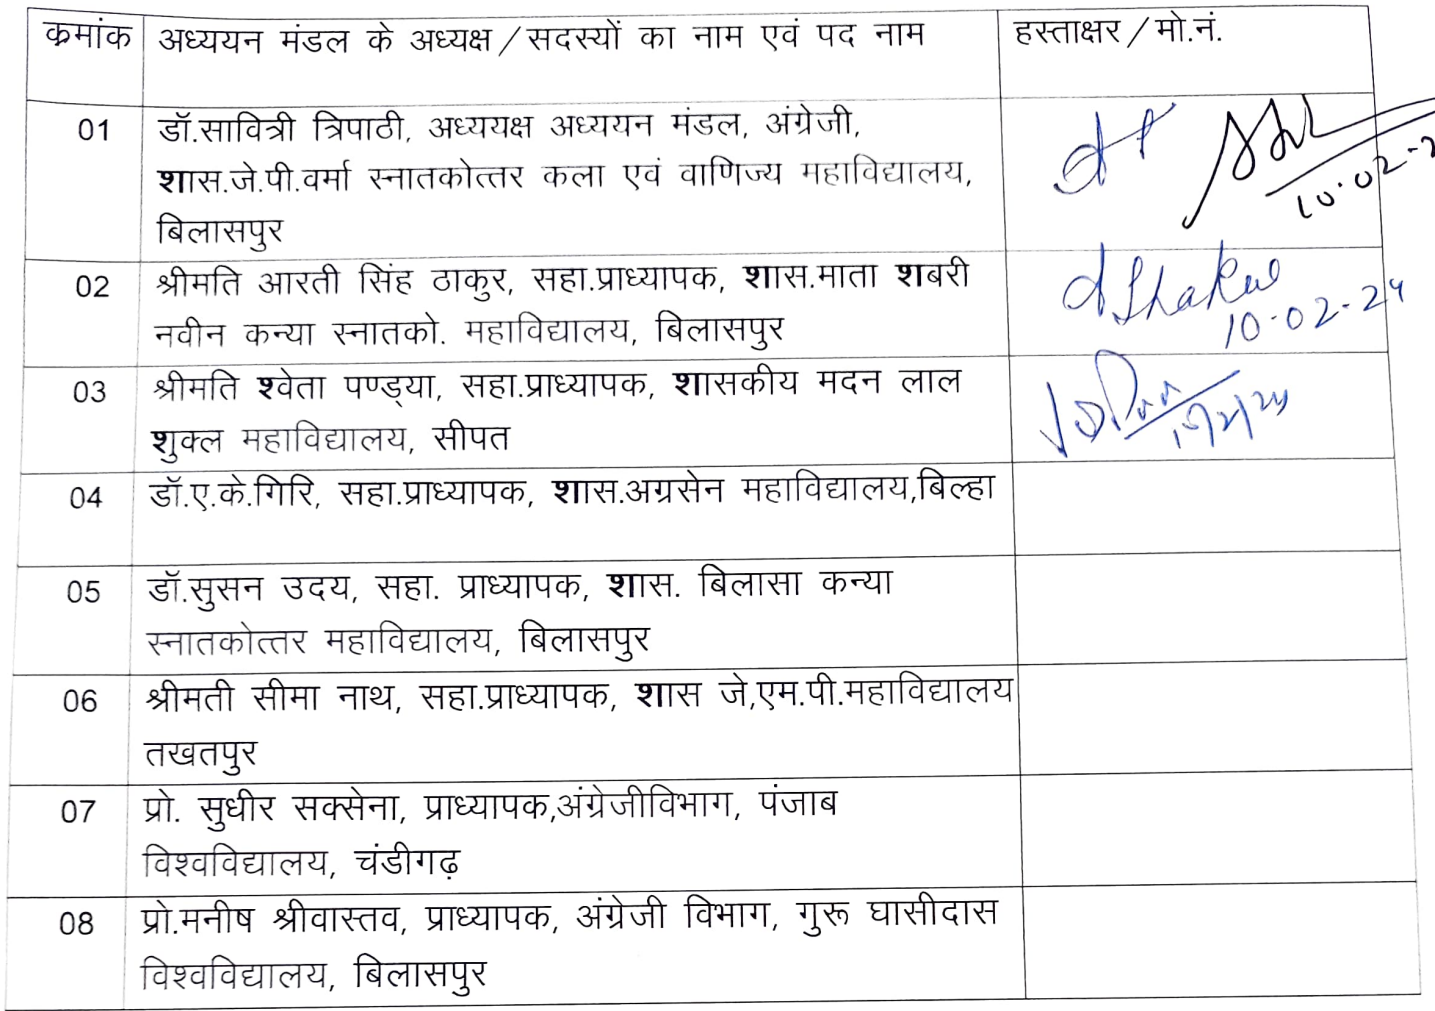 क्रमांक अध्ययन मंडल के अध्यक्ष/सदस्यों का नाम एवं पद नाम हस्ताक्षर/मो.नं.
01 डॉ.सावित्री त्रिपाठी, अध्ययक्ष अध्ययन मंडल, अंग्रेजी,
शास.जे.पी.वर्मा स्नातकोत्तर कला एवं वाणिज्य महाविद्यालय,
बिलासपुर
10.02-2
02 श्रीमति आरती सिंह ठाकुर, सहा.प्राध्यापक, शास.माता शबरी
नवीन कन्या स्नातको. महाविद्यालय, बिलासपुर
AThakur
10-02-24
03 श्रीमति श्वेता पण्ड्या, सहा.प्राध्यापक, शासकीय मदन लाल
शुक्ल महाविद्यालय, सीपत
04 डॉ.ए.के.गिरि, सहा.प्राध्यापक, शास.अग्रसेन महाविद्यालय,बिल्हा
05 डॉ.सुसन उदय, सहा. प्राध्यापक, शास. बिलासा कन्या
स्नातकोत्तर महाविद्यालय, बिलासपुर
06 श्रीमती सीमा नाथ, सहा.प्राध्यापक, शास जे,एम.पी.महाविद्यालय
तखतपुर
07 प्रो. सुधीर सक्सेना, प्राध्यापक,अंग्रेजीविभाग, पंजाब
विश्वविद्यालय, चंडीगढ़
08 प्रो.मनीष श्रीवास्तव, प्राध्यापक, अंग्रेजी विभाग, गुरू घासीदास
विश्वविद्यालय, बिलासपुर